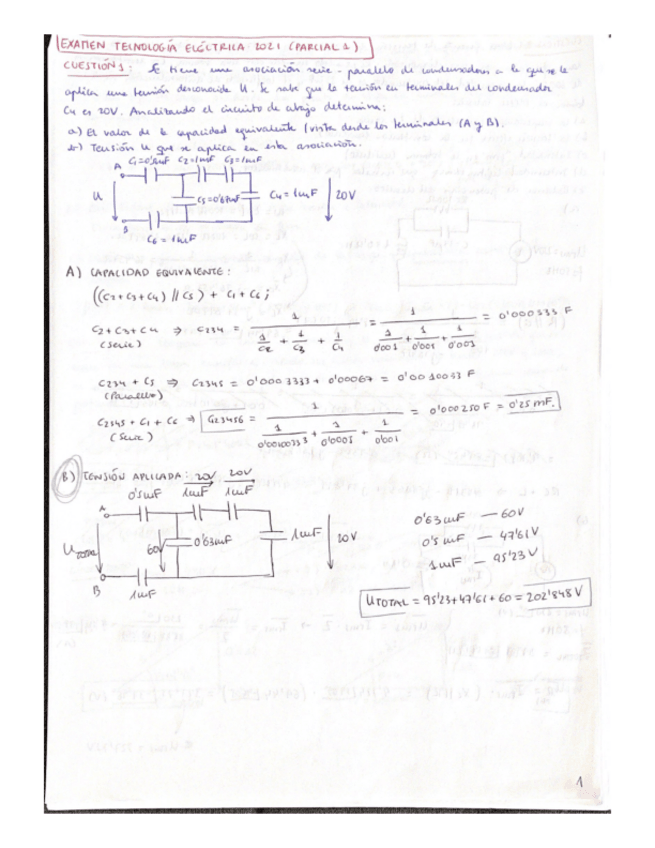 EXAMEN TECNOLOGÍA ELÉCTRICA 2021 (PARCIAL 1)
CUESTIÓN 1: Se tiene una asociación serie-paralelo de condensadores a la que se le
aplica una tensión desconocida U. Se sabe que la tensión en terminales del condensador
C4 es 20V. Analizando el circuito de abajo determina:
a) El valor de la capacidad equivalente (vista desde los terminales (A y B).
b) Tensión U que se aplica en esta asociación.
C1=0'5mF C2=1mF C3=1mF
A
U
C5=0'67mF
C4=1mF
20V
B
C6=1mF
A) CAPACIDAD EQUIVALENTE:
((C2+C3+C4) // C5) + C1 + C6;
C2+C3+C4 ⇒ C234 = 1 / (1/C2 + 1/C3 + 1/C4) = 1 / (1/0'001 + 1/0'001 + 1/0'001) = 0'000333 F
(Serie)
C234 + C5 ⇒ C2345 = 0'0003333 + 0'00067 = 0'0010033 F
(Paralelo)
C2345 + C1 + C6 ⇒ C123456 = 1 / (1/0'0010033 + 1/0'0005 + 1/0'001) = 0'000250 F = 0'25 mF.
(Serie)
B) TENSIÓN APLICADA: 20V 20V
0'5mF 1mF 1mF
A
UTOTAL
60V
0'63mF
1mF
20V
B
1mF
0'63mF — 60V
0'5mF — 47'61V
1mF — 95'23V
UTOTAL = 95'23+47'61+60 = 202'848V
1